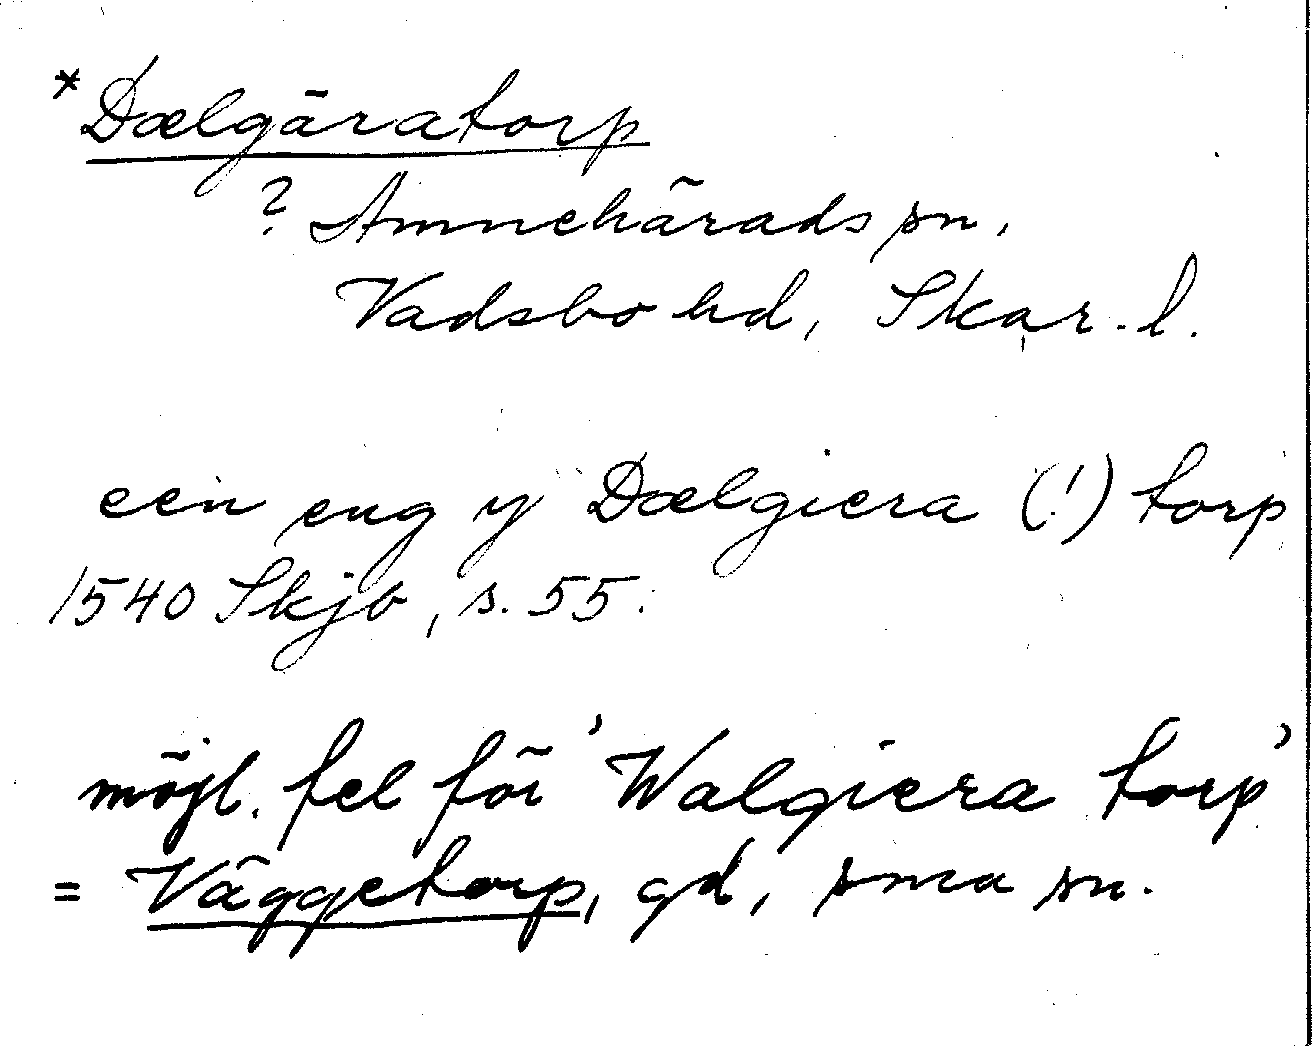 *Dælgäratorp
? Amnehärads sn,
Vadsbo hd, Skar. l.
een eng y Dælgiera (!) torp
1540 Skjb, s. 55.
möjl. fel för 'Walgiera torp'
= Väggetorp, gd, sma sn.